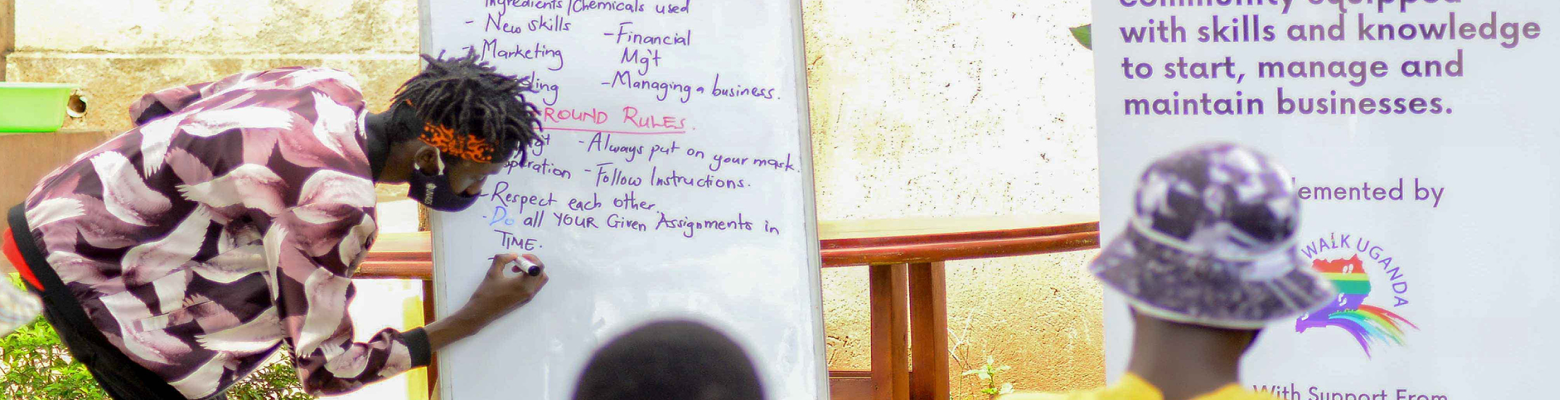 Ingredients/Chemicals used
- New skills
- Marketing
- Financial
Mgt
- Managing a business.
ROUND RULES.
- Always put on your mask.
- Follow Instructions.
- Respect each other
- Do all YOUR Given Assignments in
TIME.
community equipped
with skills and knowledge
to start, manage and
maintain businesses.
lemented by
WALK UGANDA
With Support From